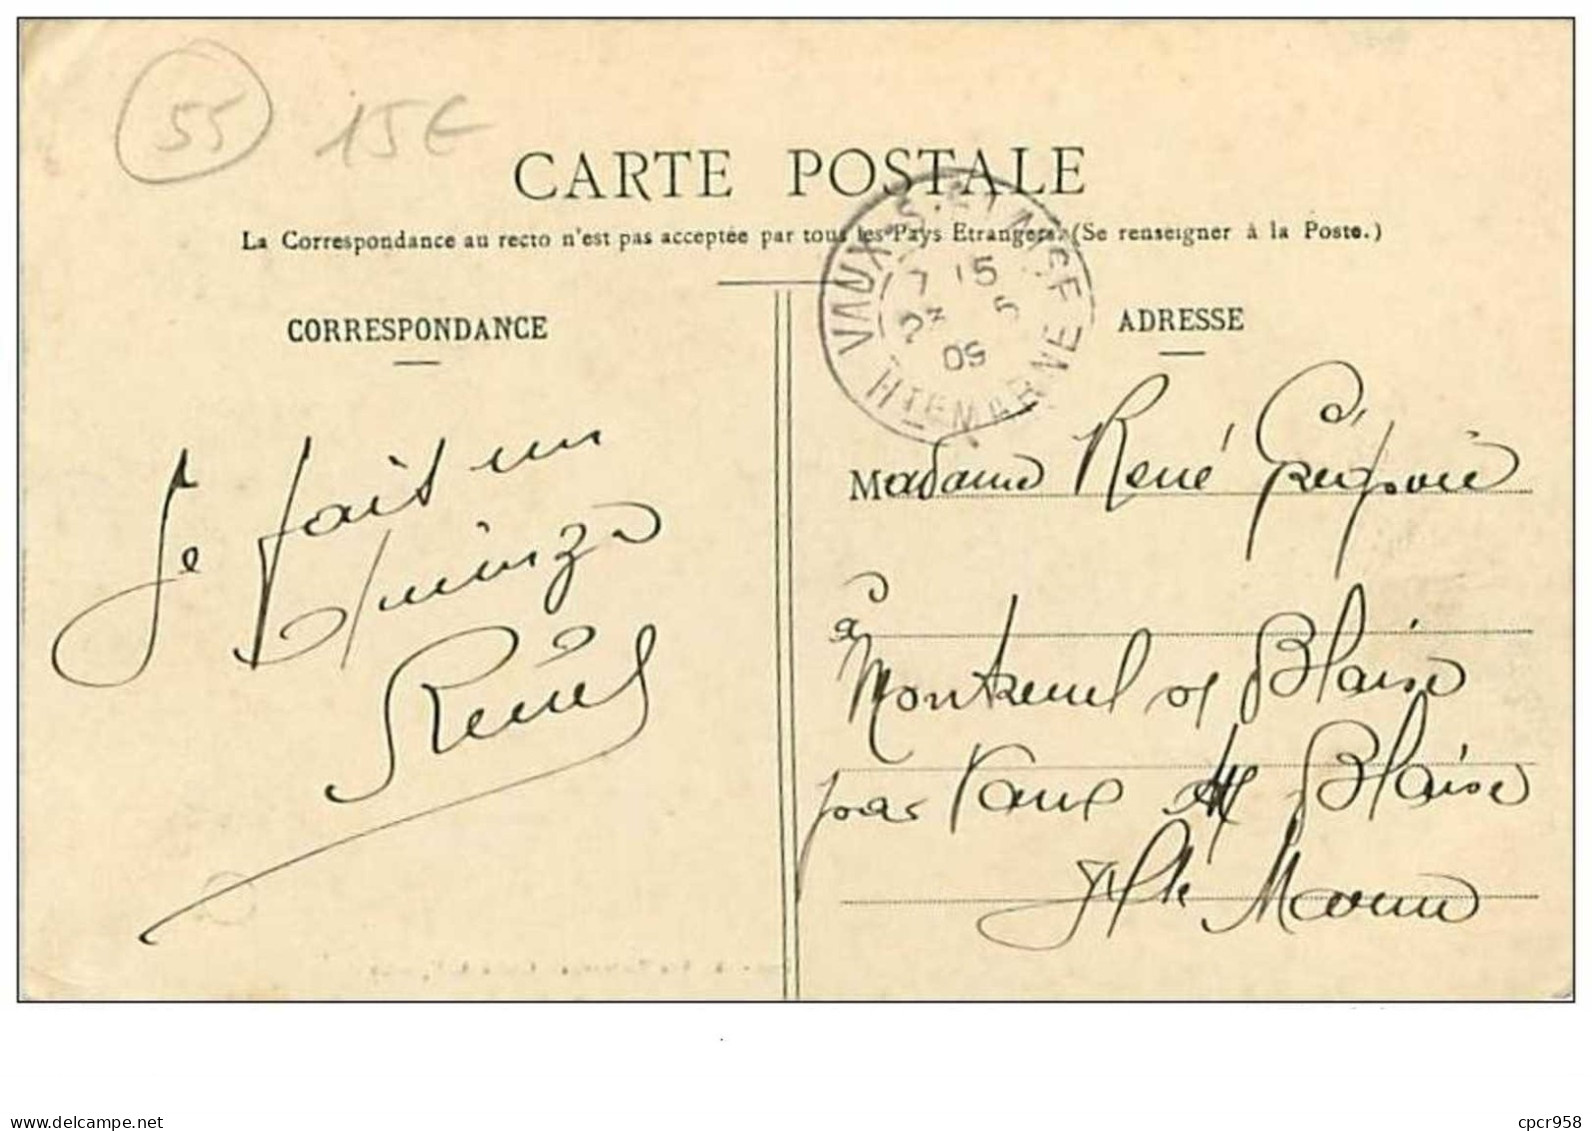 55 15€
CARTE POSTALE
La Correspondance au recto n'est pas acceptée par tous les Pays Etrangers. (Se renseigner à la Poste.)
VAUX-S-BLAISE
7 15
23 5
05
HTE MARNE
CORRESPONDANCE
ADRESSE
Je fait un
quinze
René
Madame René
à
Montreuil s/ Blaise
par Vaux s/ Blaise
Hte Marne
www.delcampe.net
cpcr958